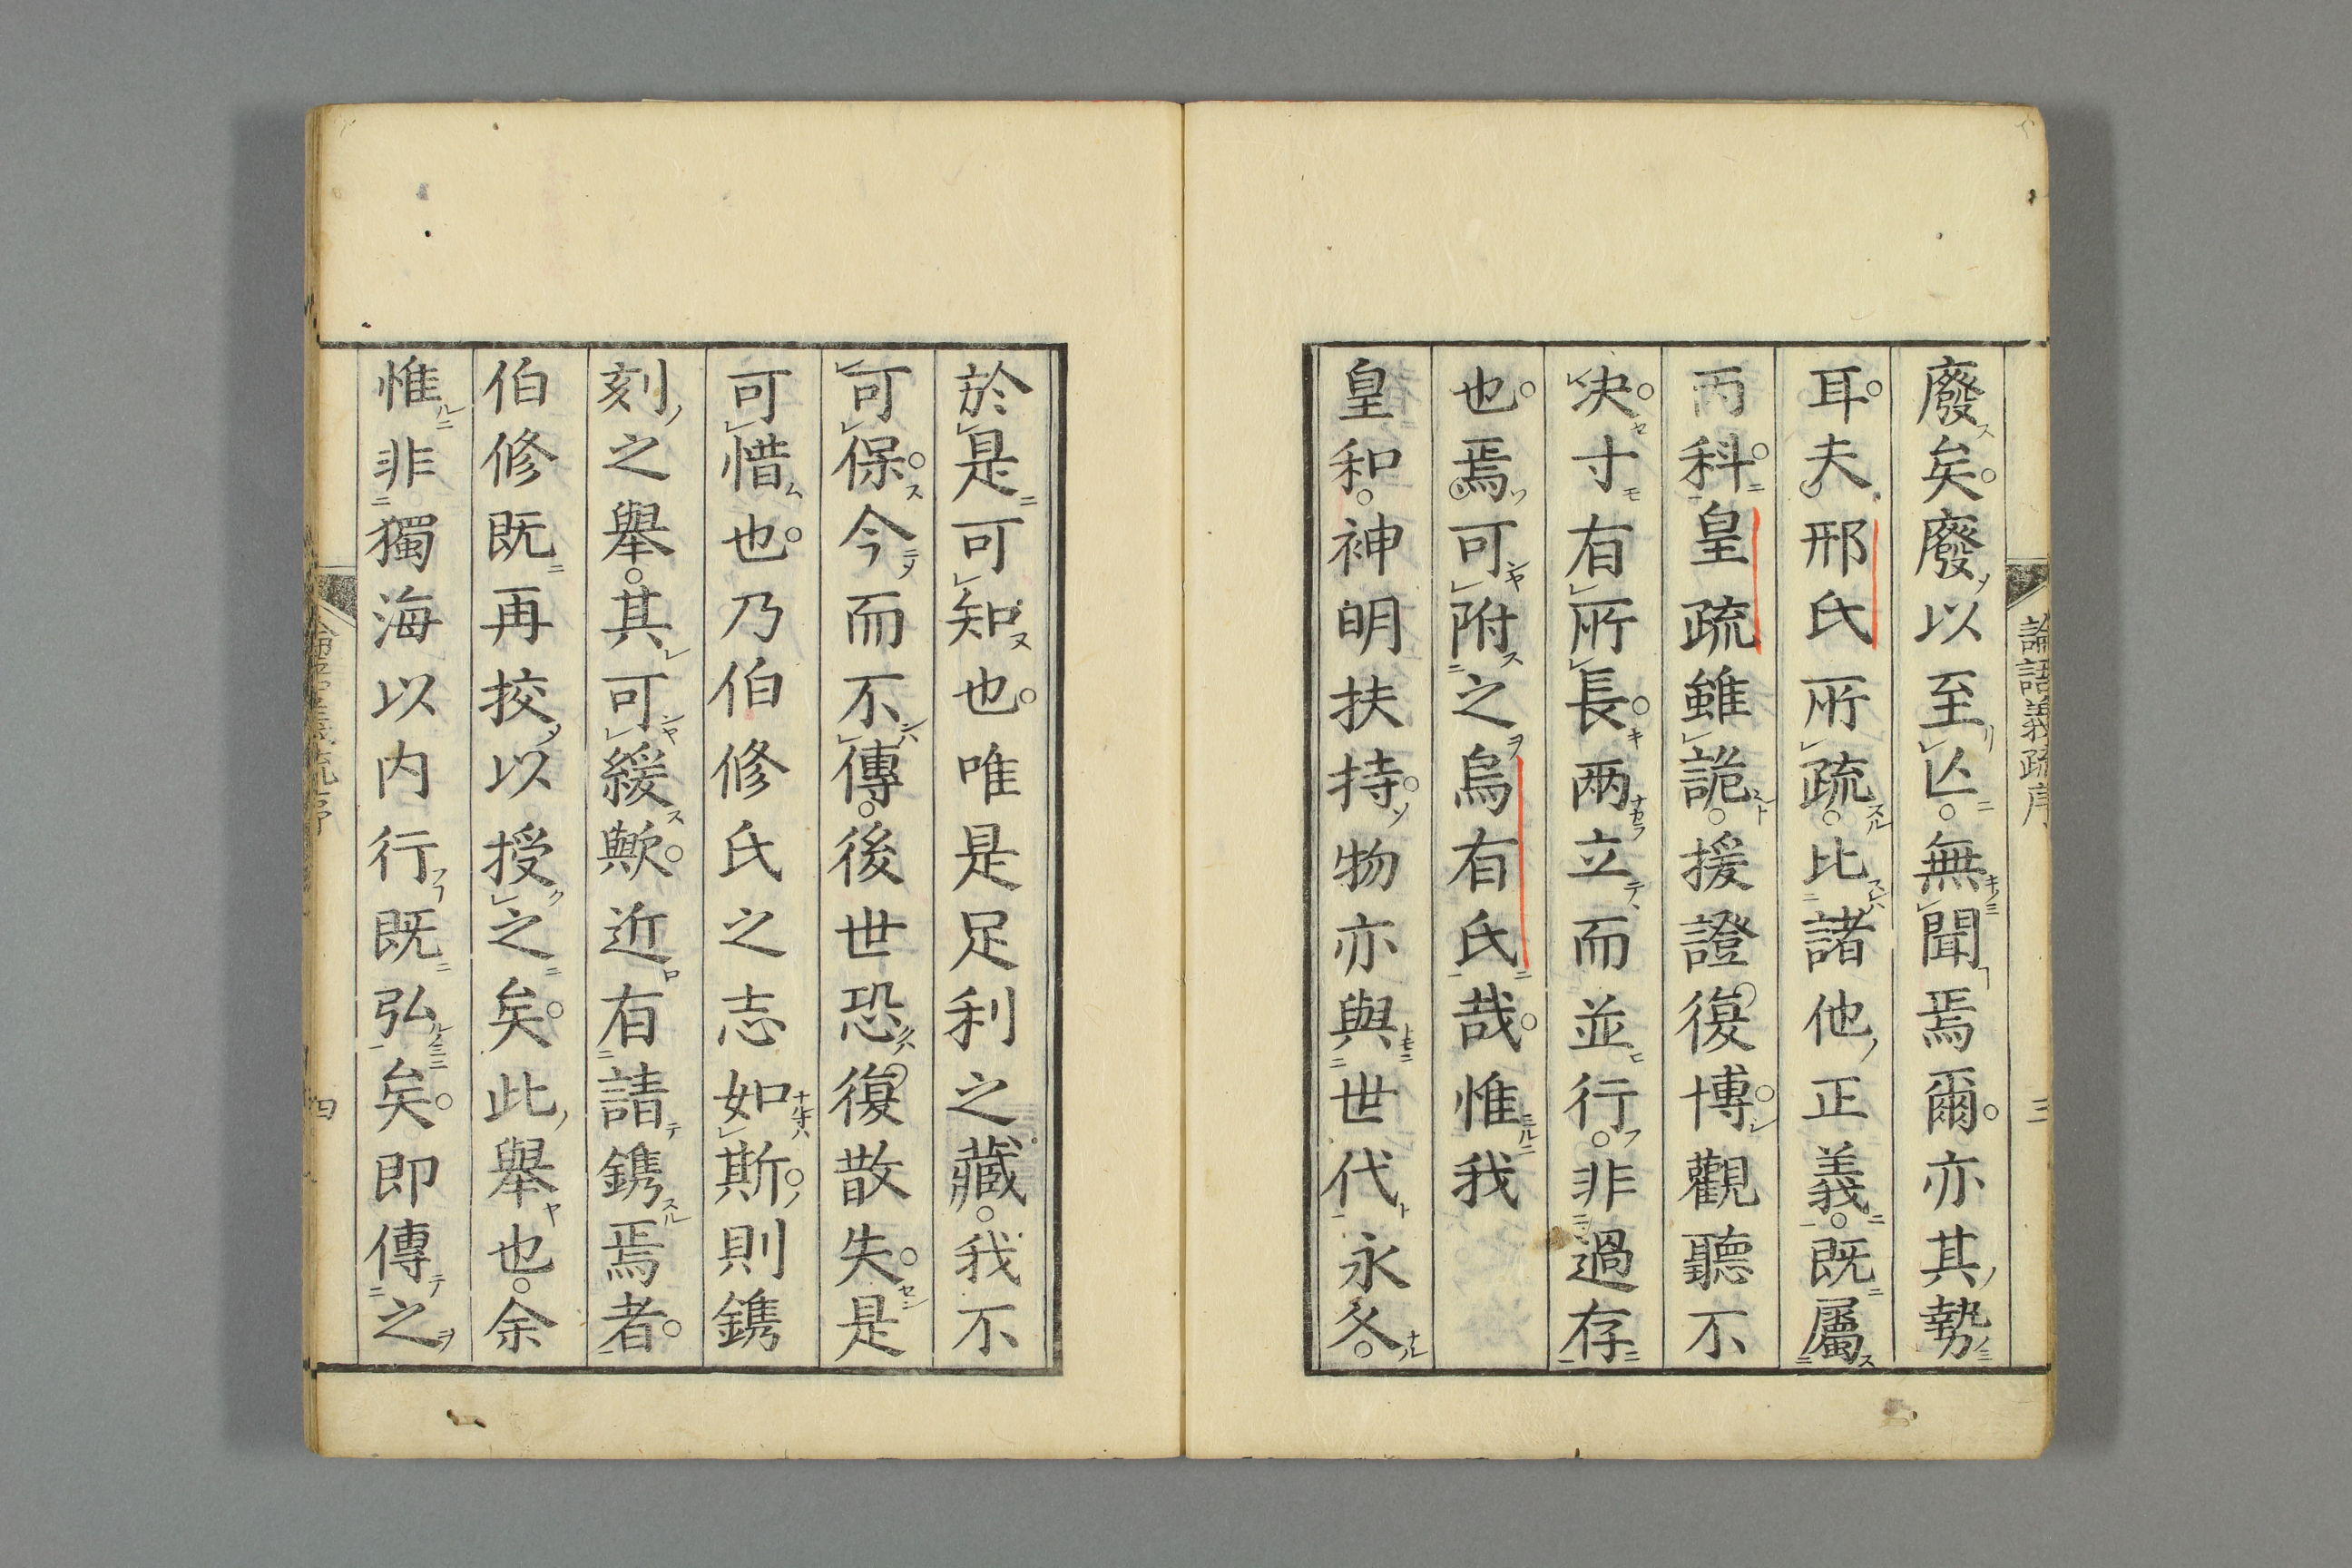 論語義疏序
三
廢矣廢以至亾無聞焉爾亦其勢
耳夫邢氏所疏比諸他正義既屬
丙科皇疏雖詭援證復博觀聽不
决寸有所長两立而並行非過存
也焉可附之烏有氏哉惟我
皇和神明扶持物亦與世代永久
於是可知也唯是足利之藏我不
可保今而不傳後世恐復散失是
可惜也乃伯修氏之志如斯則鐫
刻之舉其可緩歟近有請鐫焉者
伯修既再挍以授之矣此舉也余
惟非獨海以内行既弘矣即傳之
論語義疏序
四